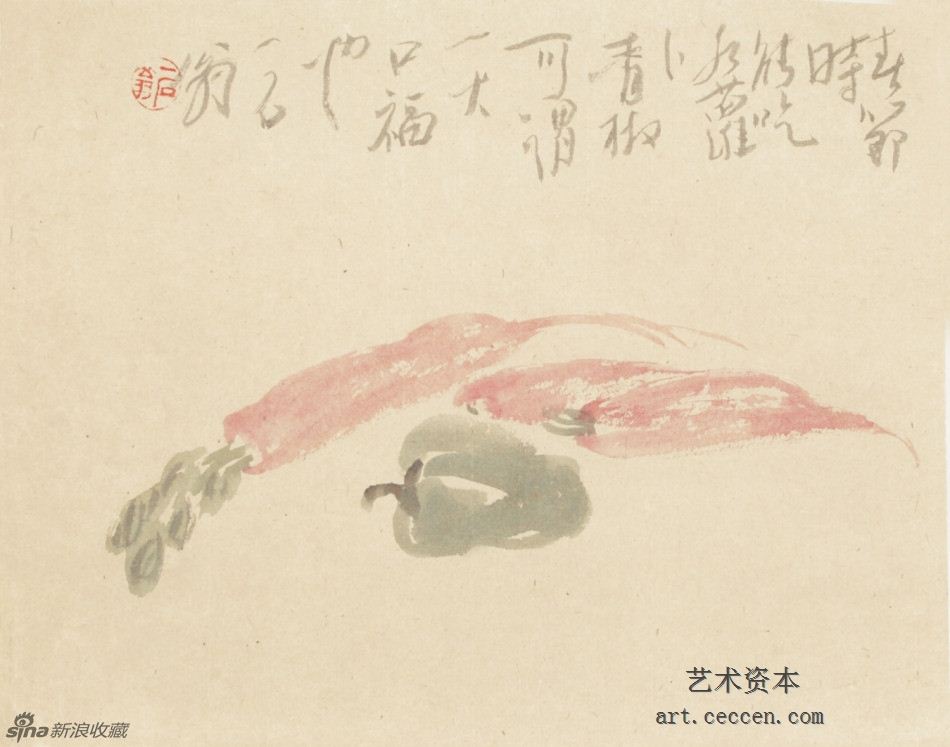 春節
時
能吃
蘿
卜
青椒
可謂
一大
口福
也
二石
翁
二石翁
艺术资本
art.ceccen.com
sina新浪收藏